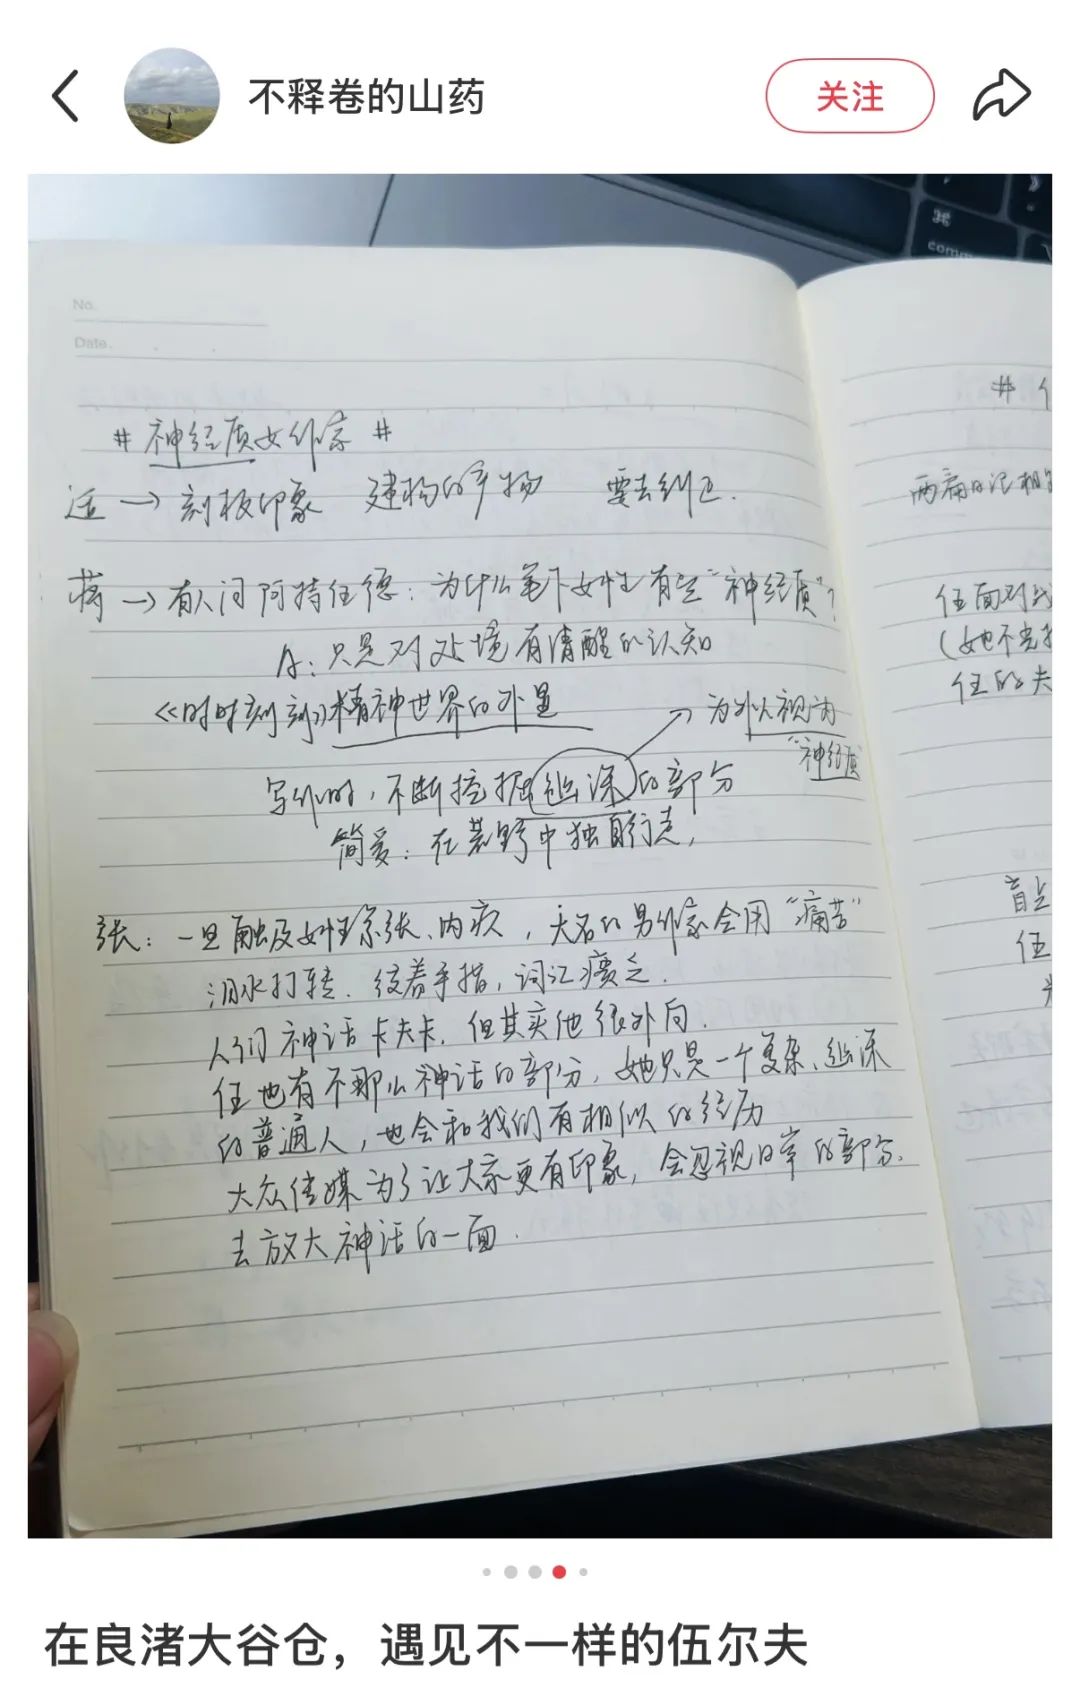 不释卷的山药
关注
command
No.
Date.
# 神经质女作家 #
→ 刻板印象 建构的产物 要去纠正.
蒋 → 有人问阿特伍德: 为什么笔下女性有点“神经质”?
A: 只是对处境有清醒的认知
《时时刻刻》精神世界的外显
→ 为外人视为
“神经质
写作时, 不断挖掘幽深的部分
简爱: 在荒野中独自行走,
张: 一旦触及女性紧张、内疚, 大名的男作家会用“痛苦”
泪水打转. 绞着手指, 词汇瘪乏.
人们神话卡夫卡, 但其实他很外向.
伍也有不那么神话的部分, 她只是一个复杂、幽深
的普通人, 也会和我们有相似的经历
大众传媒为了让大家更有印象, 会忽视日常的部分,
去放大神话的一面.
#
两篇日记相
伍面对战
(她不害
伍的夫
盲点
伍
在良渚大谷仓，遇见不一样的伍尔夫